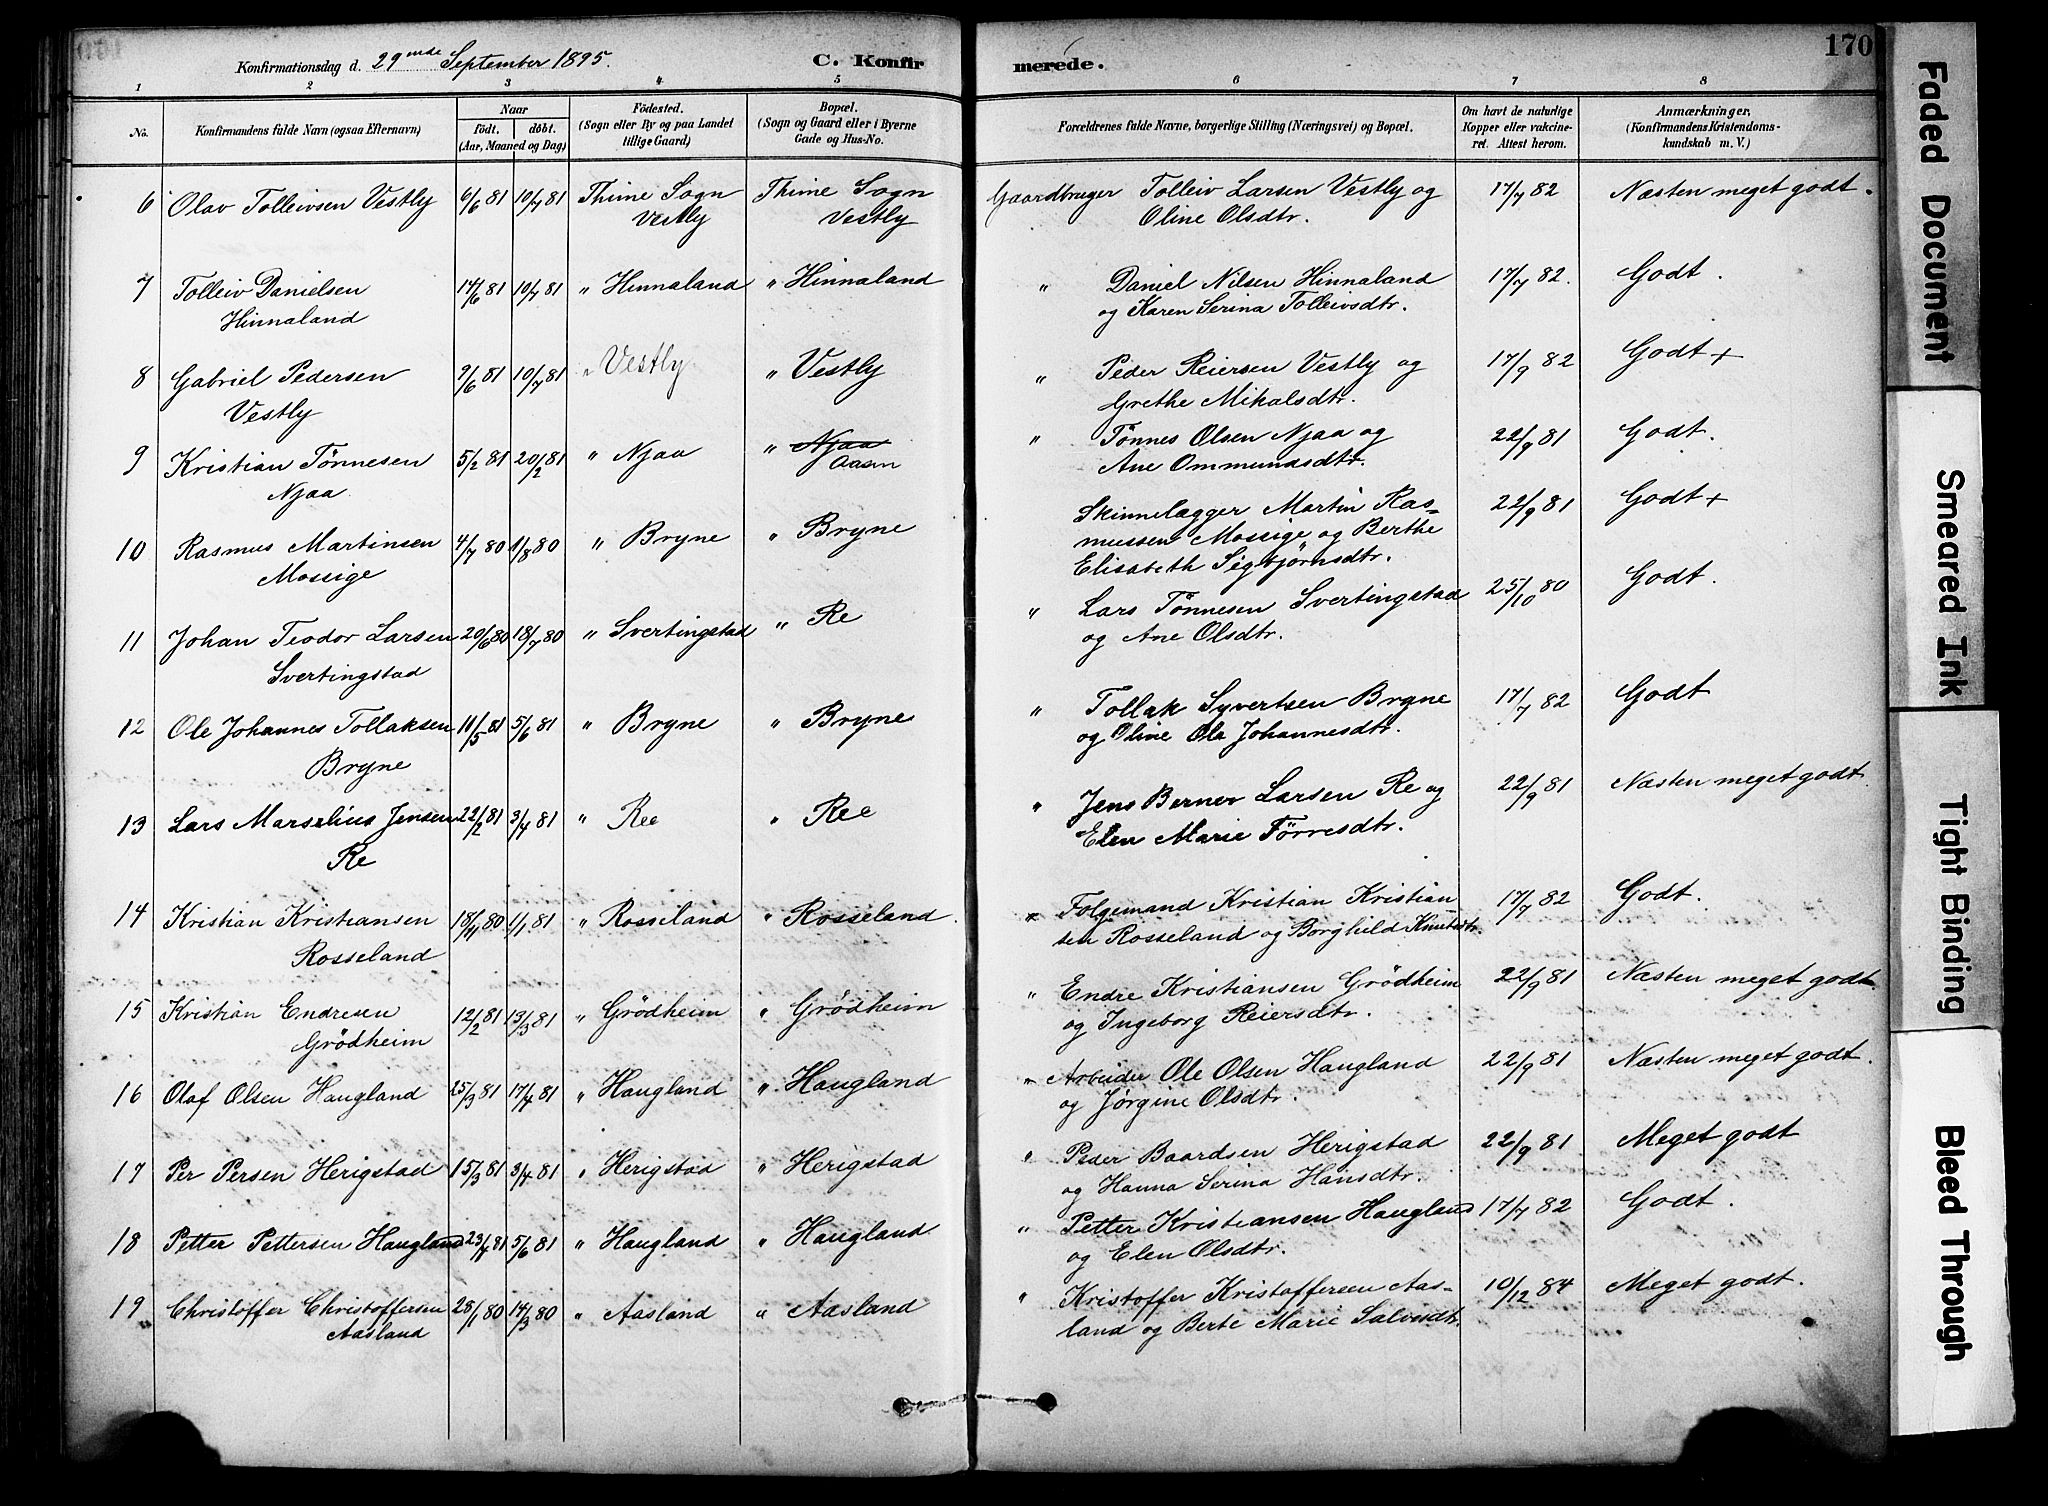 Konfirmationsdag d. 29nde September 1895. C. Konfirmerede. 170
1 2 3 4 5 6 7 8
No. Konfirmandens fulde Navn (ogsaa Efternavn) Naar født. døbt. (Aar, Maaned og Dag) Födested. (Sogn eller By og paa Landet tillige Gaard) Bopæl. (Sogn og Gaard eller i Byerne Gade og Hus-No. Forældrenes fulde Navne, borgerlige Stilling (Næringsvei) og Bopæl. Om havt de naturlige Kopper eller vakcineret. Attest herom. Anmærkninger, (Konfirmandens Kristendomskundskab m. V.)
6 Olav Tolleivsen Vestly 6/6 81 10/7 81 Thime Sogn Vestly Thime Sogn Vestly Gaardbruger Tolleiv Larsen Vestly og Oline Olsdtr. 17/7 82 Næsten meget godt.
7 Tolleiv Danielsen Hinnaland 14/6 81 10/7 81 " Hinnaland " Hinnaland " Daniel Nilsen Hinnaland og Karen Serina Tolleivsdtr. 17/7 82. Godt.
8 Gabriel Pedersen Vestly 9/6 81 10/7 81 " Vestly " Vestly " Peder Reiersen Vestly og Grethe Mikalsdtr. 17/9 82 Godt +
9 Kristian Tönnesen Njaa 5/2 81 20/2 81 " Njaa " Njaa Aasen " Tönnes Olsen Njaa og Ane Ommundsdtr. 22/9 81 Godt.
10 Rasmus Martinsen Mossige 4/7 80 1/8 80 " Bryne " Bryne Skinnelægger Martin Rasmussen Mossige og Berthe Elisabeth Sigbjørnsdtr. 22/9 81 Godt +
11 Johan Teodor Larsen Svertingstad 20/6 80 18/7 80 " Svertingstad " Re " Lars Tönnesen Svertingstad og Ane Olsdtr. 25/10 80 Godt.
12 Ole Johannes Tollaksen Bryne 11/5 81 5/6 81 " Bryne " Bryne " Tollak Syvertsen Bryne og Oline Ola Johannesdtr. 17/7 82 Godt
13 Lars Marselius Jensen Re 22/2 81 3/4 81 " Ree " Ree " Jens Berner Larsen Re og Elen Marie Törresdtr. 22/9 81 Næsten meget godt
14 Kristian Kristiansen Rosseland 18/11 80 1/1 81 " Rosseland " Rosseland. " Folgemand Kristian Kristiansen Rosseland og Borghild Knutsdtr. 17/7 82 Godt.
15 Kristian Endresen Grödheim 12/2 81 13/3 81 " Grödheim " Grödheim " Endre Kristiansen Grödheim og Ingeborg Reiersdtr. 22/9 81 Næsten meget godt.
16 Olaf Olsen Haugland 25/3 81 17/4 81 " Haugland " Haugland " Arbeider Ole Olsen Haugland og Jørgine Olsdtr. 22/9 81 Næsten meget godt.
17 Per Persen Herigstad 15/3 81 3/4 81 " Herigstad " Herigstad " Peder Baardsen Herigstad og Hanna Serina Hansdtr. 22/9 81 Meget godt
18 Petter Pettersen Haugland 23/4 81 5/6 81 " Haugland " Haugland " Petter Kristiansen Haugland og Elen Olsdtr. 17/7 82 Godt.
19 Christoffer Christoffersen Aasland 28/1 80 14/3 80 " Aasland " Aasland " Kristoffer Kristoffersen Aasland og Berte Marie Salvesdtr. 10/12 84 Meget godt.
Faded Document
Smeared Ink
Tight Binding
Bleed Through